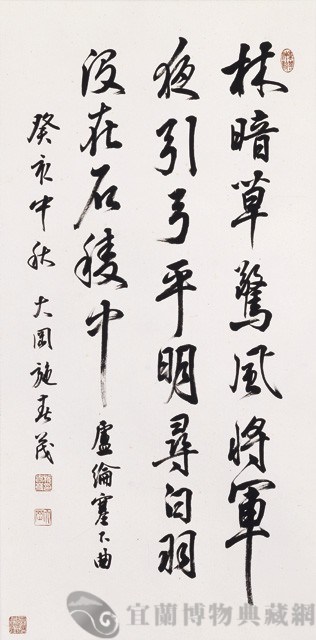 林暗草驚風將軍
夜引弓平明尋白羽
沒在石稜中 盧綸塞下曲
癸亥中秋 大圓施春茂
宜蘭博物典藏網